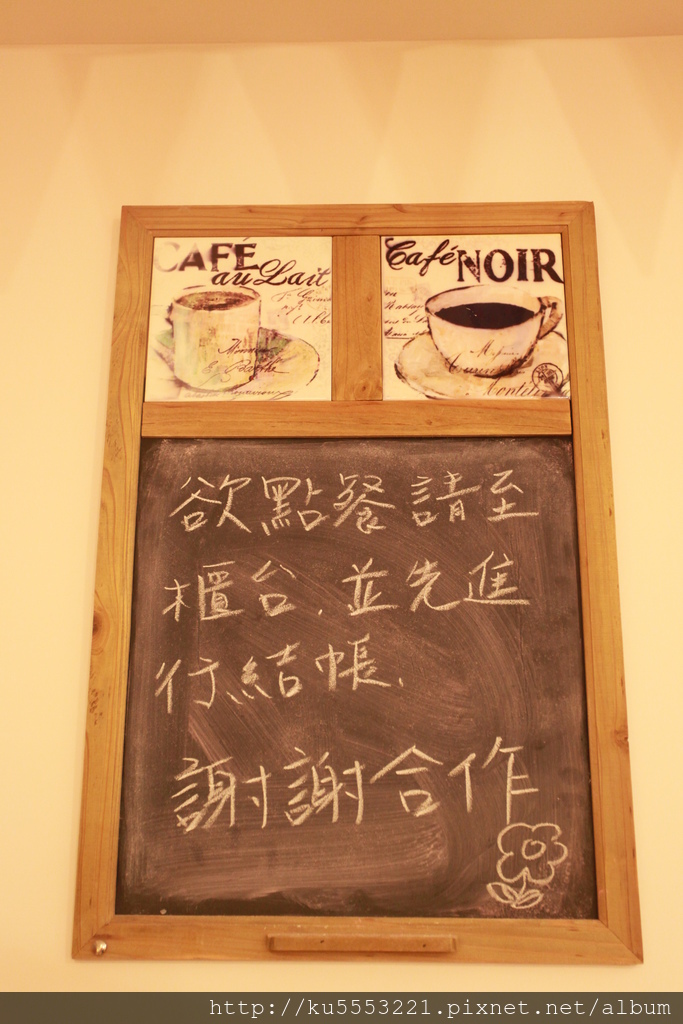 CAFÉ
au Lait
Café
NOIR
欲點餐請至
櫃台, 並先進
行結帳,
謝謝合作
http://ku5553221.pixnet.net/album